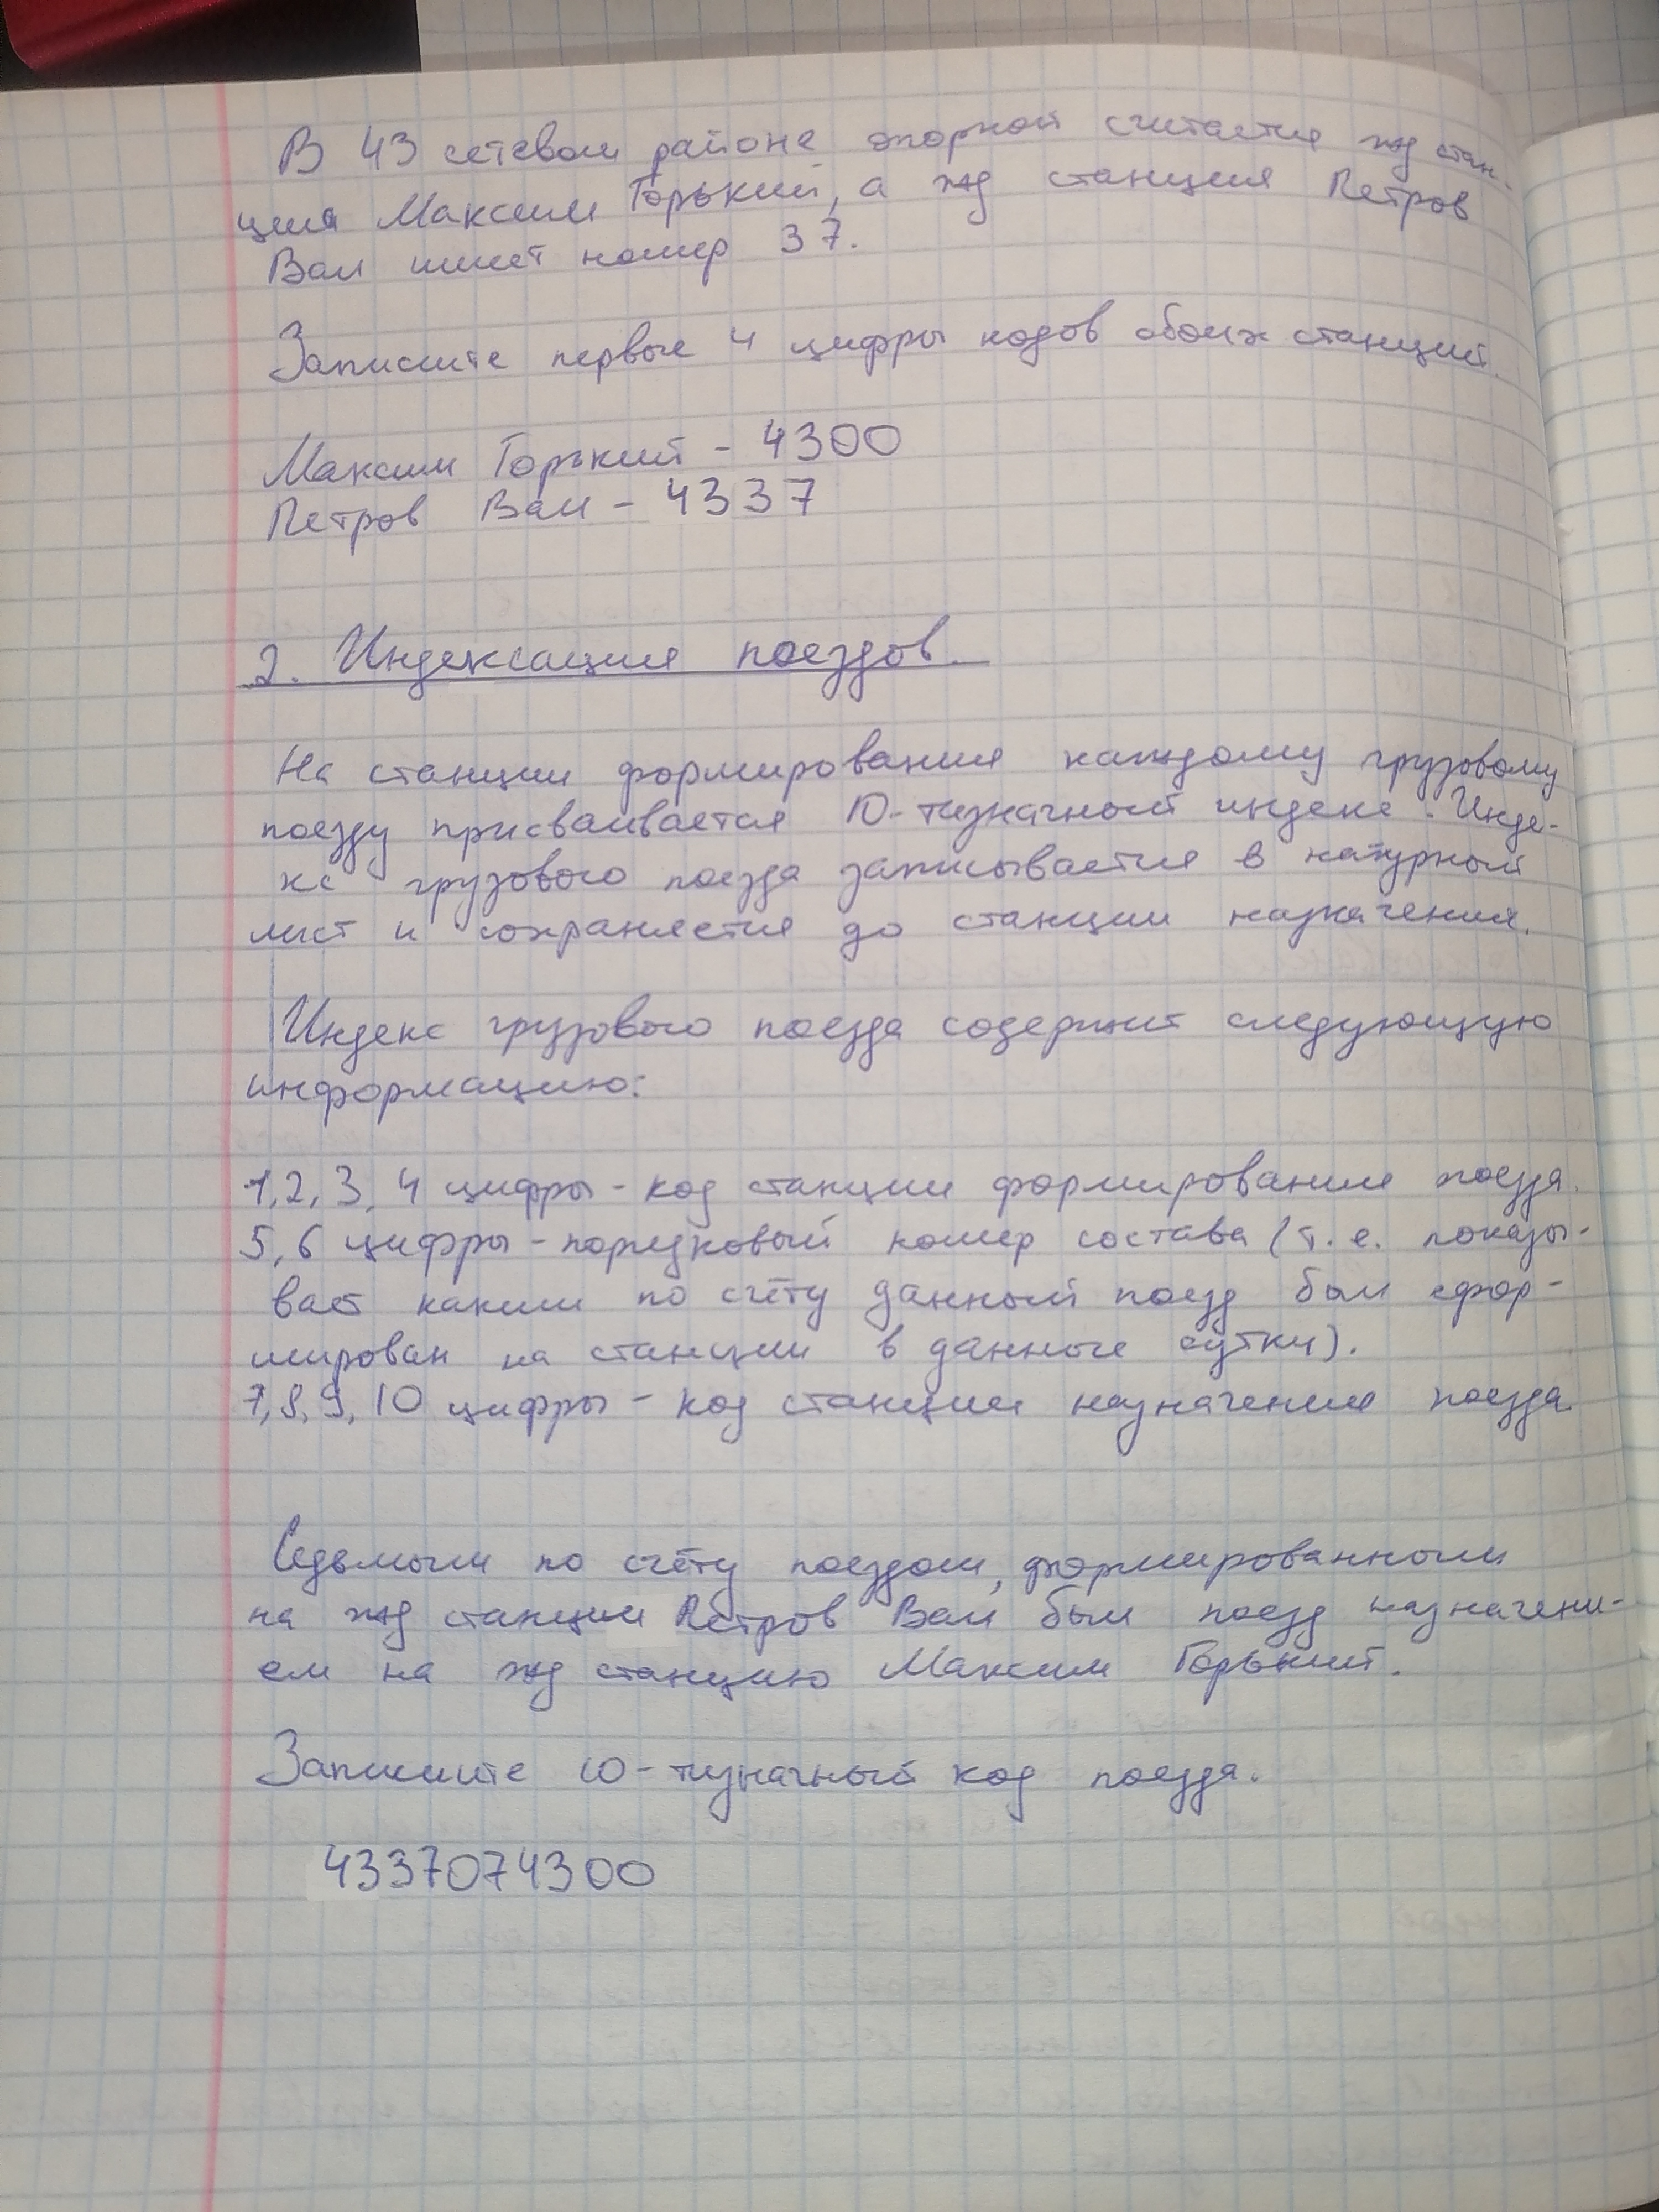 В 43 сетевом районе опорной считается жд стан-
ция Максим Горький, а жд станция Петров
Вал имеет номер 37.
Запишите первые 4 цифры кодов обоих станций.
Максим Горький - 4300
Петров Вал - 4337
2. Индексация поездов.
На станции формирования каждому грузовому
поезду присваивается 10-тизначный индекс. Инде-
кс грузового поезда записывается в натурный
лист и сохраняется до станции назначения.
Индекс грузового поезда содержит следующую
информацию:
1, 2, 3, 4 цифры - код станции формирования поезда.
5, 6 цифры - порядковый номер состава (т. е. показы-
вает каким по счёту данный поезд был сфор-
мирован на станции в данные сутки).
7, 8, 9, 10 цифры - код станции назначения поезда
Седьмым по счёту поездом, формированным
на жд станции Петров Вал был поезд назначени-
ем на жд станцию Максим Горький.
Запишите 10-тизначный код поезда.
4337074300